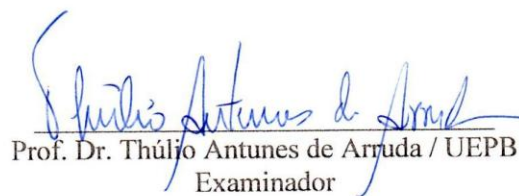 Thúlio Antunes de Arruda
Prof. Dr. Thúlio Antunes de Arruda / UEPB
Examinador